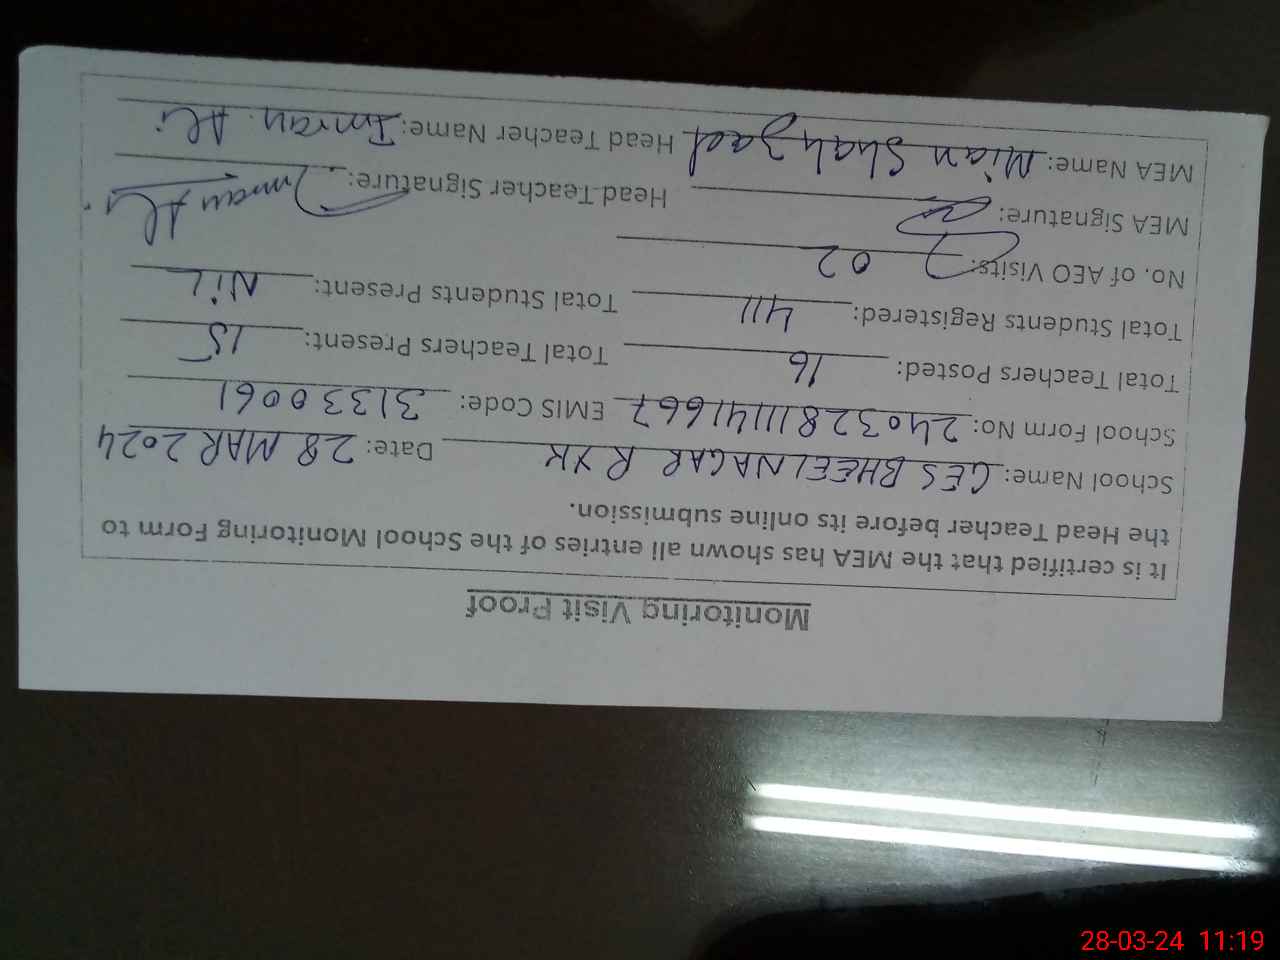 Monitoring Visit Proof
It is certified that the MEA has shown all entries of the School Monitoring Form to
the Head Teacher before its online submission.
School Name: GES BHEELNAGAR RYK Date: 28 MAR 2024
School Form No: 24032811141667 EMIS Code: 31330061
Total Teachers Posted: 16 Total Teachers Present: 15
Total Students Registered: 411 Total Students Present: NiL
No. of AEO Visits: 02
MEA Signature: Head Teacher Signature: Imran Ali
MEA Name: Mian Shahzad Head Teacher Name: Imran Ali
28-03-24 11:19